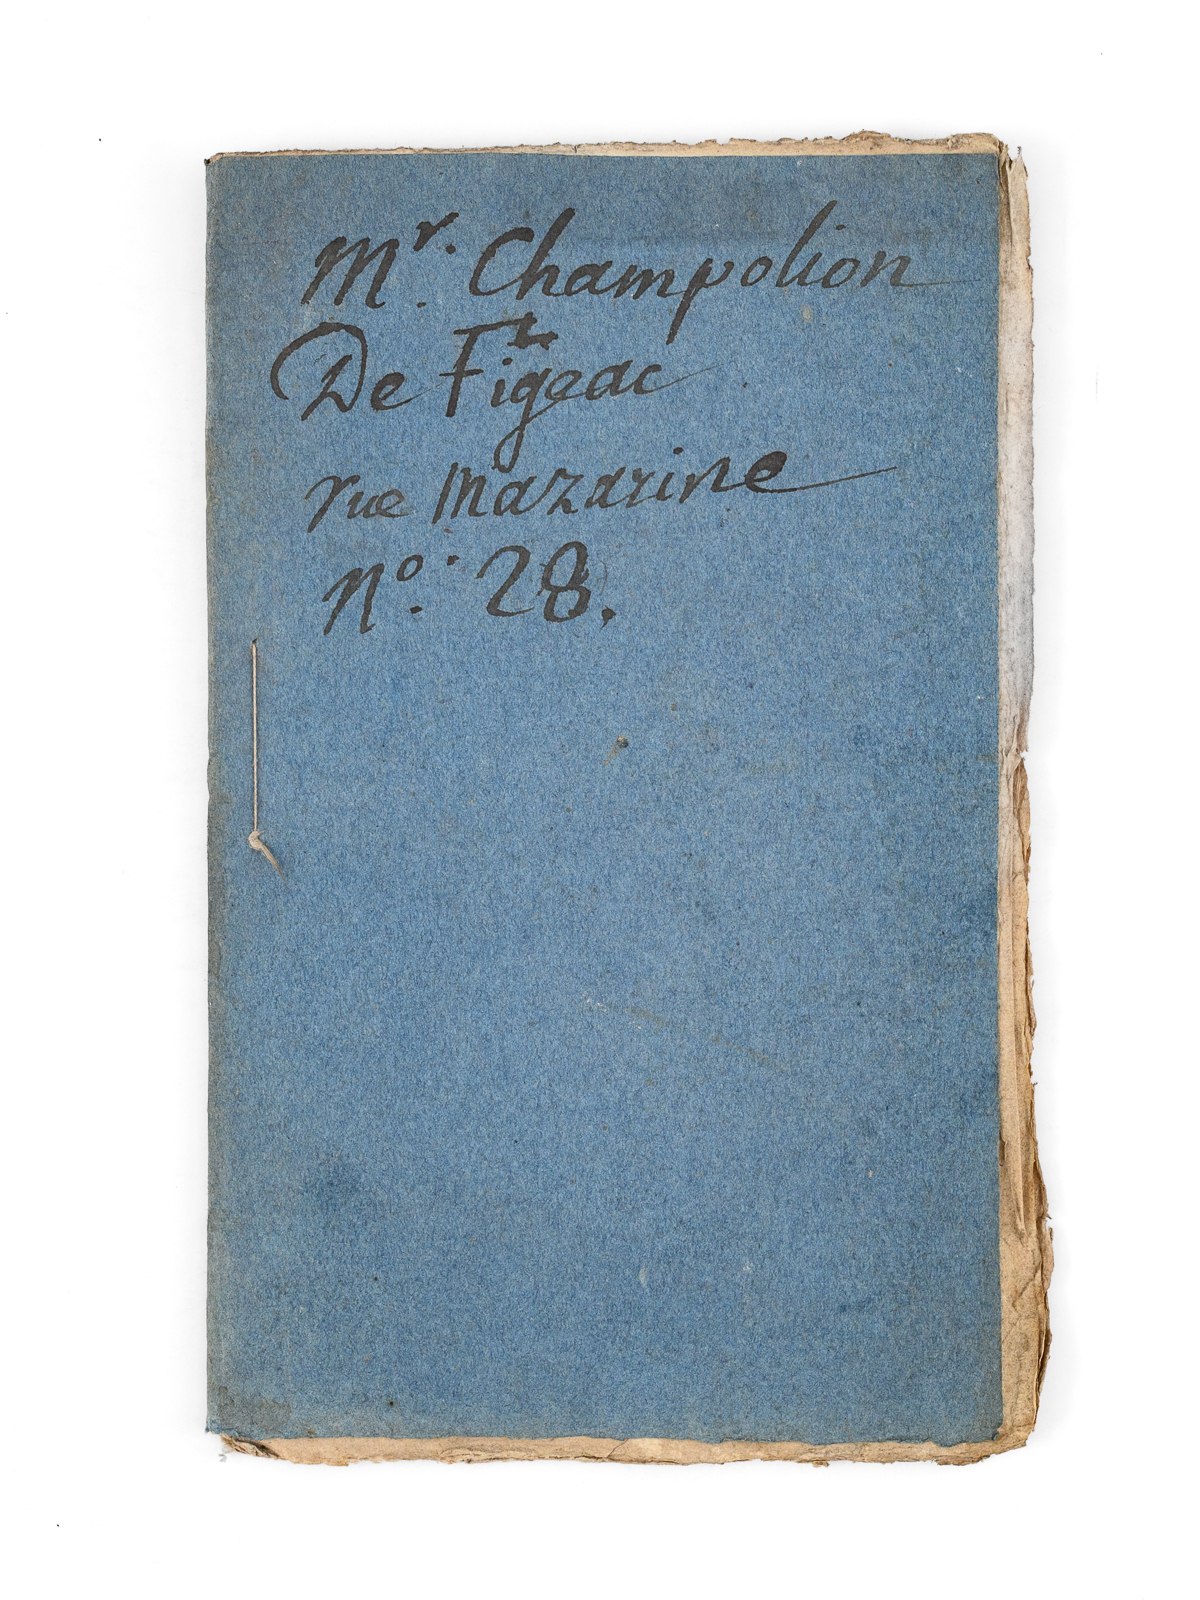 Mr. Champolion
De Figeac
rue Mazarine
No. 28.